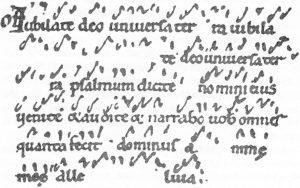 OF Iubilate deo universa ter ra iubila
te deo universa ter
ra psalmum dicite nomini eius
venite & audite & narrabo vob omnes
quanta fecit dominus a nime
meę alle luia